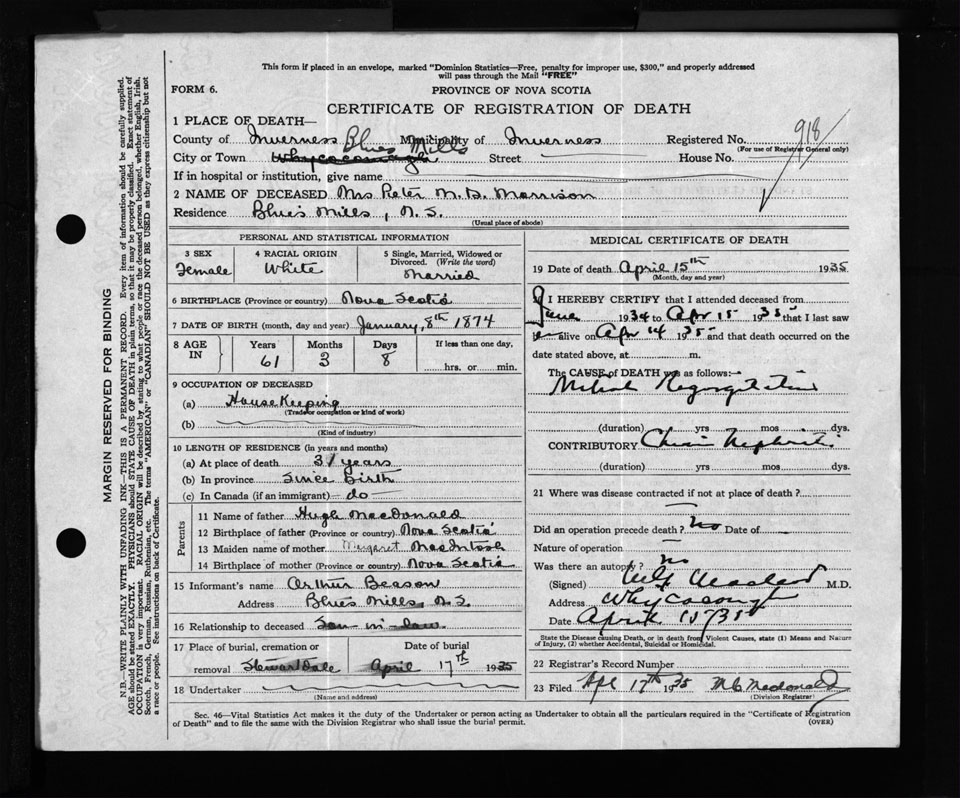 This form if placed in an envelope, marked "Dominion Statistics—Free, penalty for improper use, $300," and properly addressed
will pass through the Mail "FREE"
FORM 6.
PROVINCE OF NOVA SCOTIA
CERTIFICATE OF REGISTRATION OF DEATH
1 PLACE OF DEATH—
County of Inverness Municipality of Inverness Registered No. 918
(For use of Registrar General only)
City or Town Whycocomagh Blues Mills Street House No.
If in hospital or institution, give name
2 NAME OF DECEASED Mrs Peter M. D. Morrison
Residence Blue's Mills, N.S.
(Usual place of abode)
PERSONAL AND STATISTICAL INFORMATION
3 SEX Female
4 RACIAL ORIGIN White
5 Single, Married, Widowed or
Divorced. (Write the word)
Married
6 BIRTHPLACE (Province or country) Nova Scotia
7 DATE OF BIRTH (month, day and year) January, 8th 1874
8 AGE IN Years Months Days If less than one day,
61 3 8 hrs. or min.
9 OCCUPATION OF DECEASED
(a) House Keeping
(Trade or occupation or kind of work)
(b)
(Kind of industry)
10 LENGTH OF RESIDENCE (in years and months)
(a) At place of death 31 years
(b) In province Since Birth
(c) In Canada (if an immigrant) do
Parents
11 Name of father Hugh MacDonald
12 Birthplace of father (Province or country) Nova Scotia
13 Maiden name of mother Margaret MacIntosh
14 Birthplace of mother (Province or country) Nova Scotia
15 Informant's name Arthur Beason
Address Blues Mills, N.S.
16 Relationship to deceased Son in law
17 Place of burial, cremation or Date of burial
removal Stewartdale April 17th 1935
18 Undertaker
(Name and address)
MEDICAL CERTIFICATE OF DEATH
19 Date of death April 15th 1935
(Month, day and year)
I HEREBY CERTIFY that I attended deceased from
June 1934 to Apr 15 1935 that I last saw
alive on Apr 14 1935 and that death occurred on the
date stated above, at m.
The CAUSE of DEATH was as follows:—
Mitral Regurgitation
(duration) yrs mos dys.
CONTRIBUTORY Chronic Nephritis
(duration) yrs mos dys.
21 Where was disease contracted if not at place of death?
Did an operation precede death? No Date of
Nature of operation
Was there an autopsy? No
(Signed) M.D.
Address Whycocomagh
Date April 15/35
State the Disease causing Death, or in death from Violent Causes, state (1) Means and Nature
of Injury, (2) whether Accidental, Suicidal or Homicidal.
22 Registrar's Record Number
23 Filed Apl 17th 1935
(Division Registrar)
Sec. 46—Vital Statistics Act makes it the duty of the Undertaker or person acting as Undertaker to obtain all the particulars required in the "Certificate of Registration
of Death" and to file the same with the Division Registrar who shall issue the burial permit.
(OVER)
MARGIN RESERVED FOR BINDING
N.B.—WRITE PLAINLY WITH UNFADING INK—THIS IS A PERMANENT RECORD. Every item of information should be carefully supplied.
AGE should be stated EXACTLY. PHYSICIANS should STATE CAUSE OF DEATH in plain terms, so that it may be properly classified. Exact statement of
OCCUPATION is very important. RACIAL ORIGIN will be described by stating to what people or race the deceased person belonged, whether English, Irish,
Scotch, French, German, Russian, Ruthenian, etc. The terms "AMERICAN" or "CANADIAN" SHOULD NOT BE USED as they express citizenship but not
a race or people. See instructions on back of Certificate.